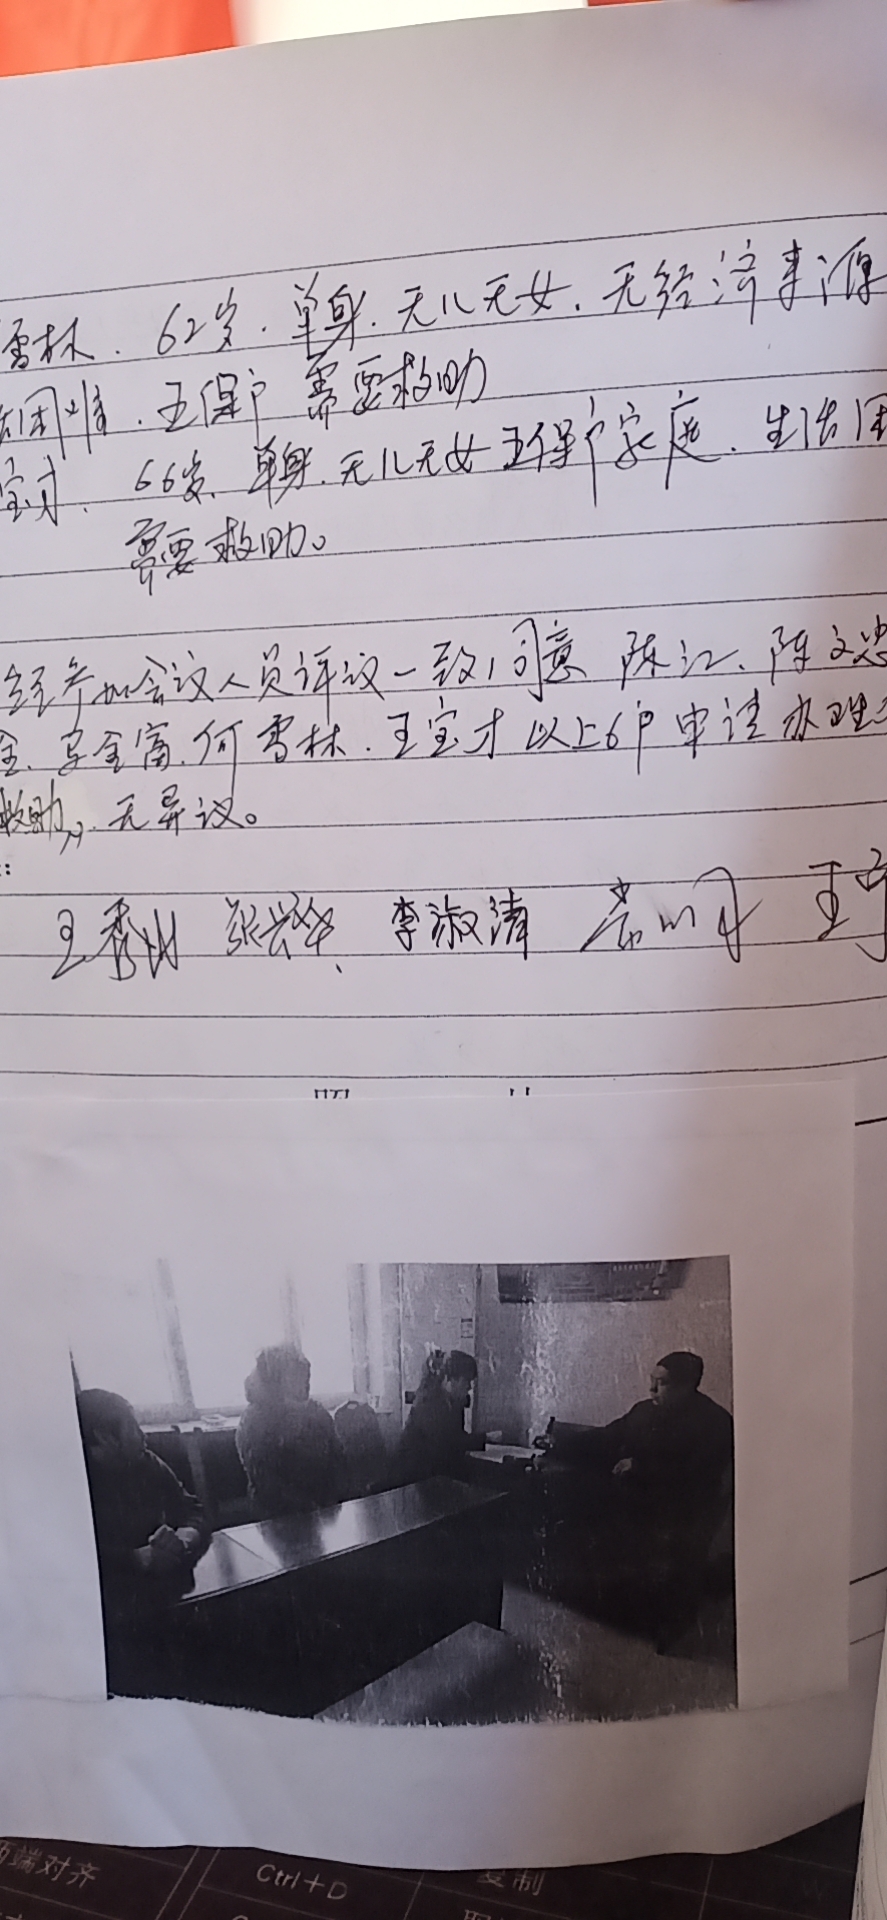 雪林. 62岁. 单身. 无儿无女. 无经济来源
困难. 五保户 需要救助
宝才. 66岁. 单身. 无儿无女 五保户家庭. 生活困
需要救助。
经参加会议人员评议一致同意 陈江、陈文忠
金富. 何雪林. 王宝才 以上6户申请办理
救助 无异议。
:
李淑清
两端对齐
Ctrl+D
复制